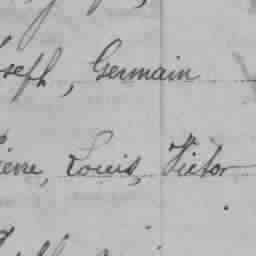 Joseph, Germain
Pierre, Louis, Victor